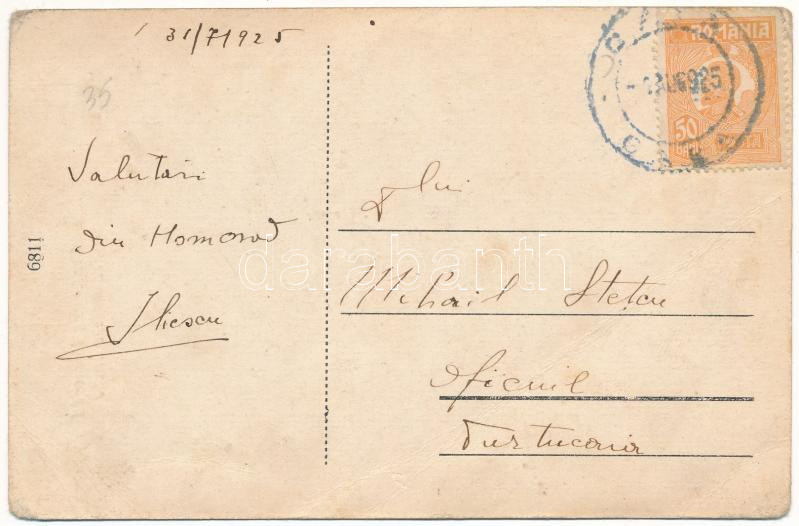 31/7 1925
35
Salutari
din Homorod
Iliescu
6811
ROMANIA
50
BANI
POSTA
AUG 925
Dlui
Mihail Stetcu
Oficiul
Turtucaia
darabanth